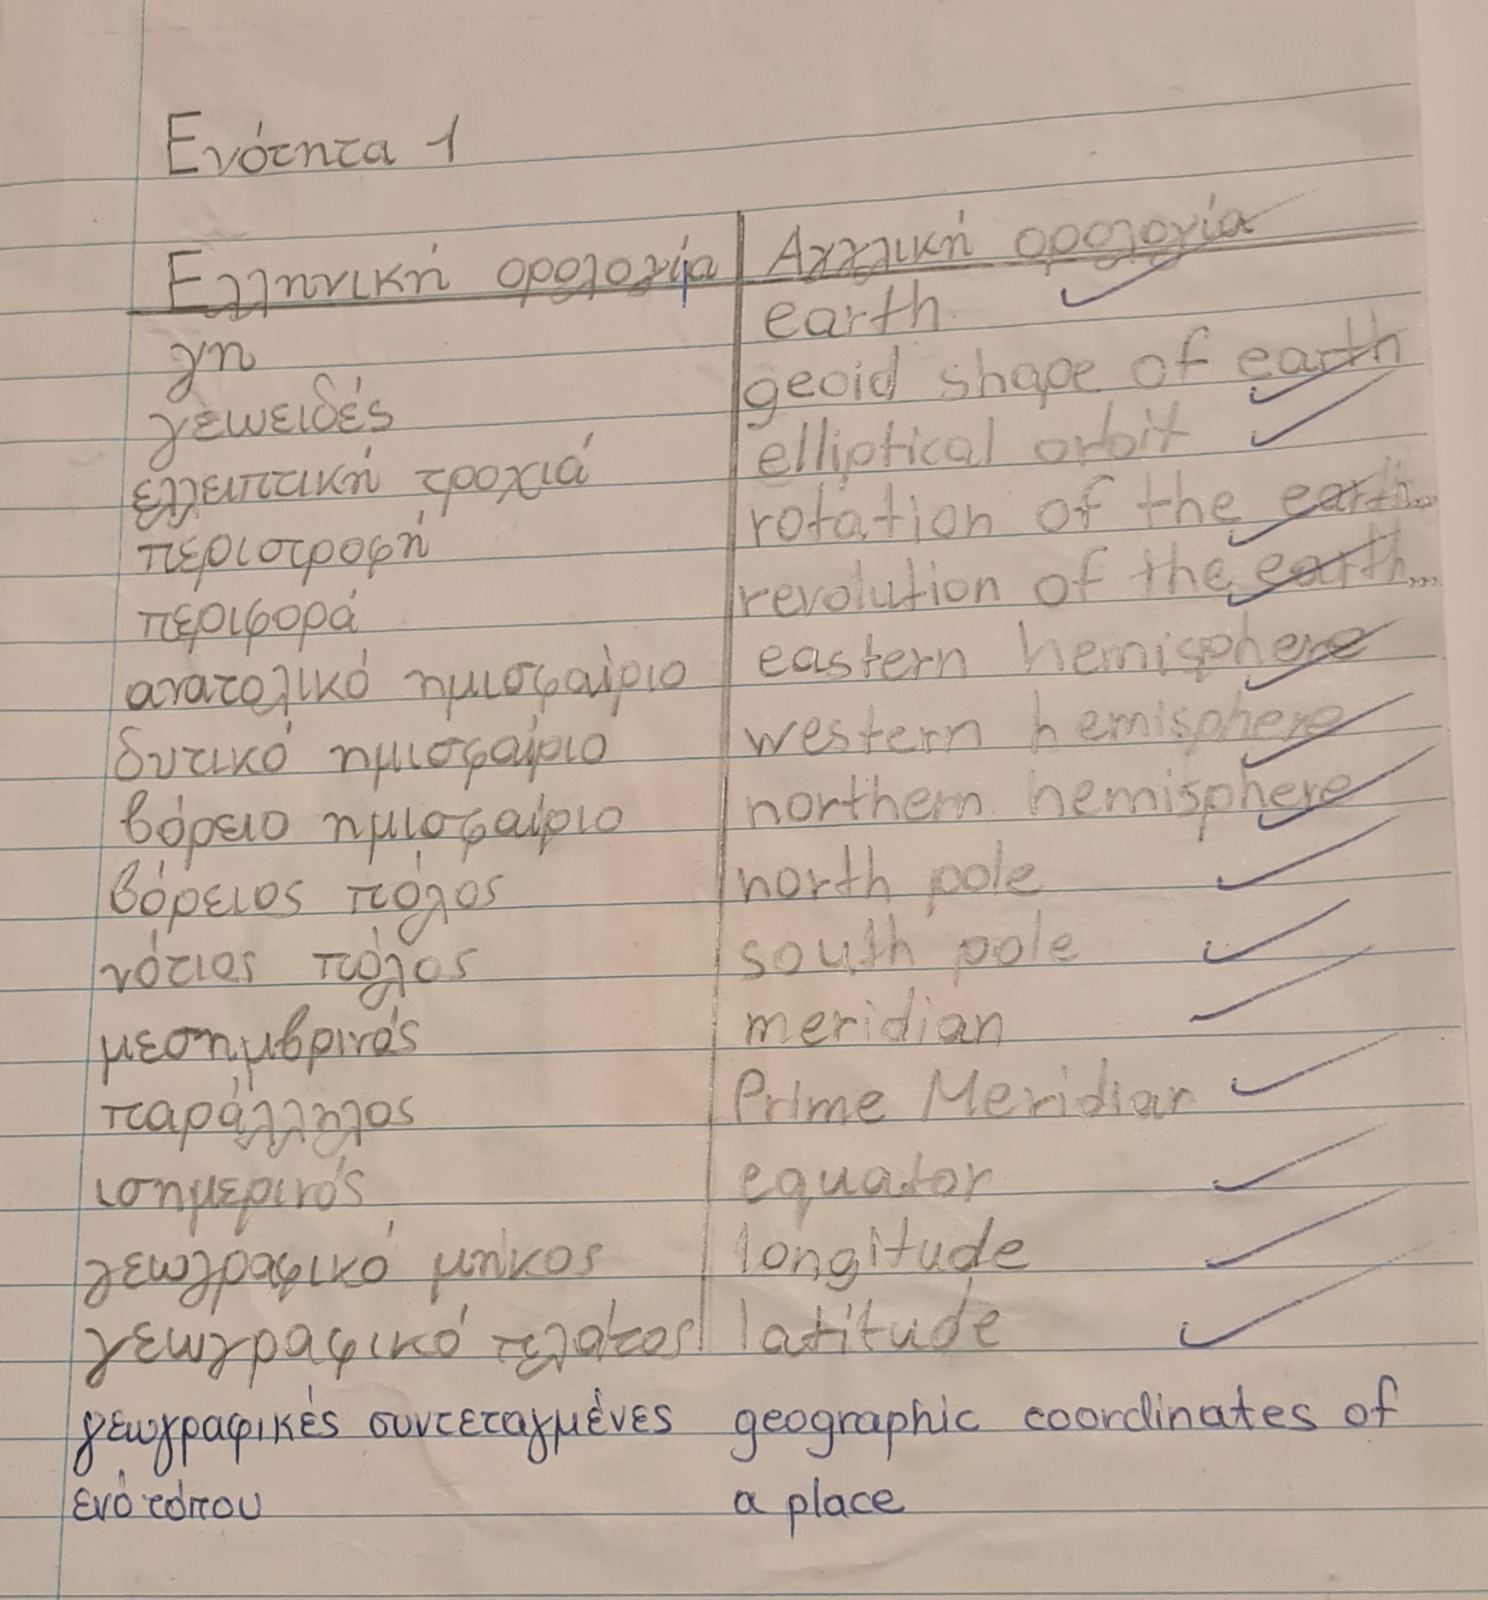 Ενότητα 1
Ελληνική ορολογία Αγγλική ορολογία
γη earth
γεωειδές geoid shape of earth
ελλειπτική τροχιά elliptical orbit
περιστροφή rotation of the earth...
περιφορά revolution of the earth...
ανατολικό ημισφαίριο eastern hemisphere
δυτικό ημισφαίριο western hemisphere
βόρειο ημισφαίριο northern hemisphere
βόρειος πόλος north pole
νότιος πόλος south pole
μεσημβρινός meridian
παράλληλος Prime Meridian
ισημερινός equator
γεωγραφικό μήκος longitude
γεωγραφικό πελάτος latitude
γεωγραφικές συντεταγμένες geographic coordinates of
ενό τόπου a place